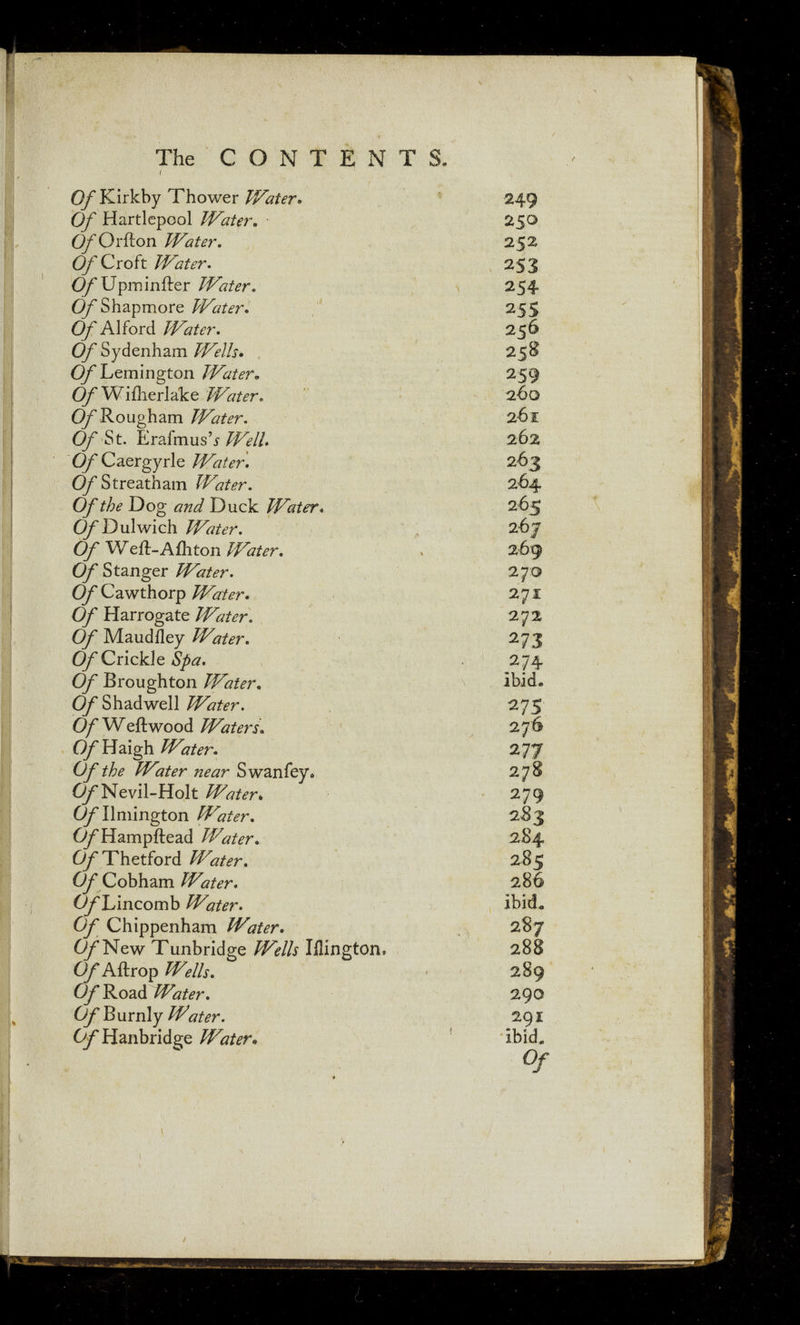 The CONTENTS.
Of Kirkby Thower Water. 249
Of Hartlepool Water. 250
Of Orſton Water. 252
Of Croft Water. 253
Of Upminſter Water. 254
Of Shapmore Water. 255
Of Alford Water. 256
Of Sydenham Wells. 258
Of Lemington Water. 259
Of Wiſherlake Water. 260
Of Rougham Water. 261
Of St. Eraſmus's Well. 262
Of Caergyrle Water. 263
Of Streatham Water. 264
Of the Dog and Duck Water. 265
Of Dulwich Water. 267
Of Weſt-Aſhton Water. 269
Of Stanger Water. 270
Of Cawthorp Water. 271
Of Harrogate Water. 272
Of Maudſley Water. 273
Of Crickle Spa. 274
Of Broughton Water. ibid.
Of Shadwell Water. 275
Of Weſtwood Waters. 276
Of Haigh Water. 277
Of the Water near Swanſey. 278
Of Nevil-Holt Water. 279
Of Ilmington Water. 283
Of Hampſtead Water. 284
Of Thetford Water. 285
Of Cobham Water. 286
Of Lincomb Water. ibid.
Of Chippenham Water. 287
Of New Tunbridge Wells Iſlington. 288
Of Aſtrop Wells. 289
Of Road Water. 290
Of Burnly Water. 291
Of Hanbridge Water. ibid.
Of